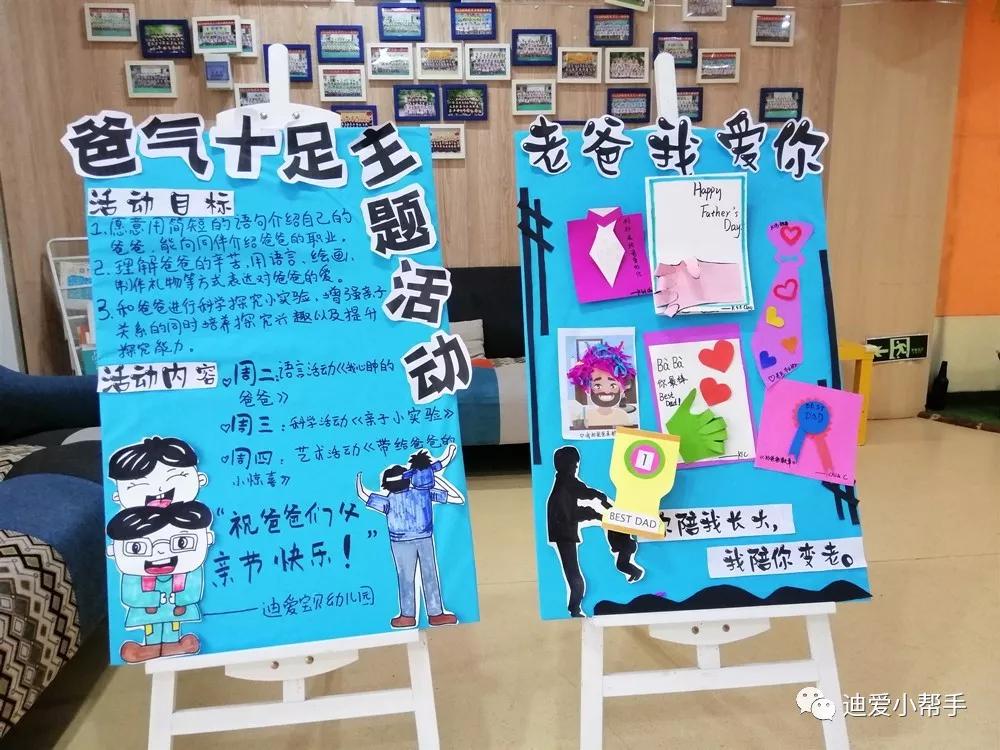 爸气十足主题活动
活动目标
1.愿意用简短的语句介绍自己的
爸爸,能向同伴介绍爸爸的职业。
2.理解爸爸的辛苦,用语言、绘画、
制作礼物等方式表达对爸爸的爱。
3.和爸爸进行科学探究小实验,增强亲子
关系的同时培养探究兴趣以及提升
探究能力。
活动内容
周二:语言活动《我心中的
爸爸》
周三:科学活动《亲子小实验》
周四:艺术活动《带给爸爸的
小惊喜》
“祝爸爸们父
亲节快乐!”
——迪爱宝贝幼儿园
老爸我爱你
Happy
Father's
Day
Bà Bà
你最棒
Best
Dad!
BEST
DAD
1
BEST DAD
你陪我长大,
我陪你变老。
迪爱小帮手